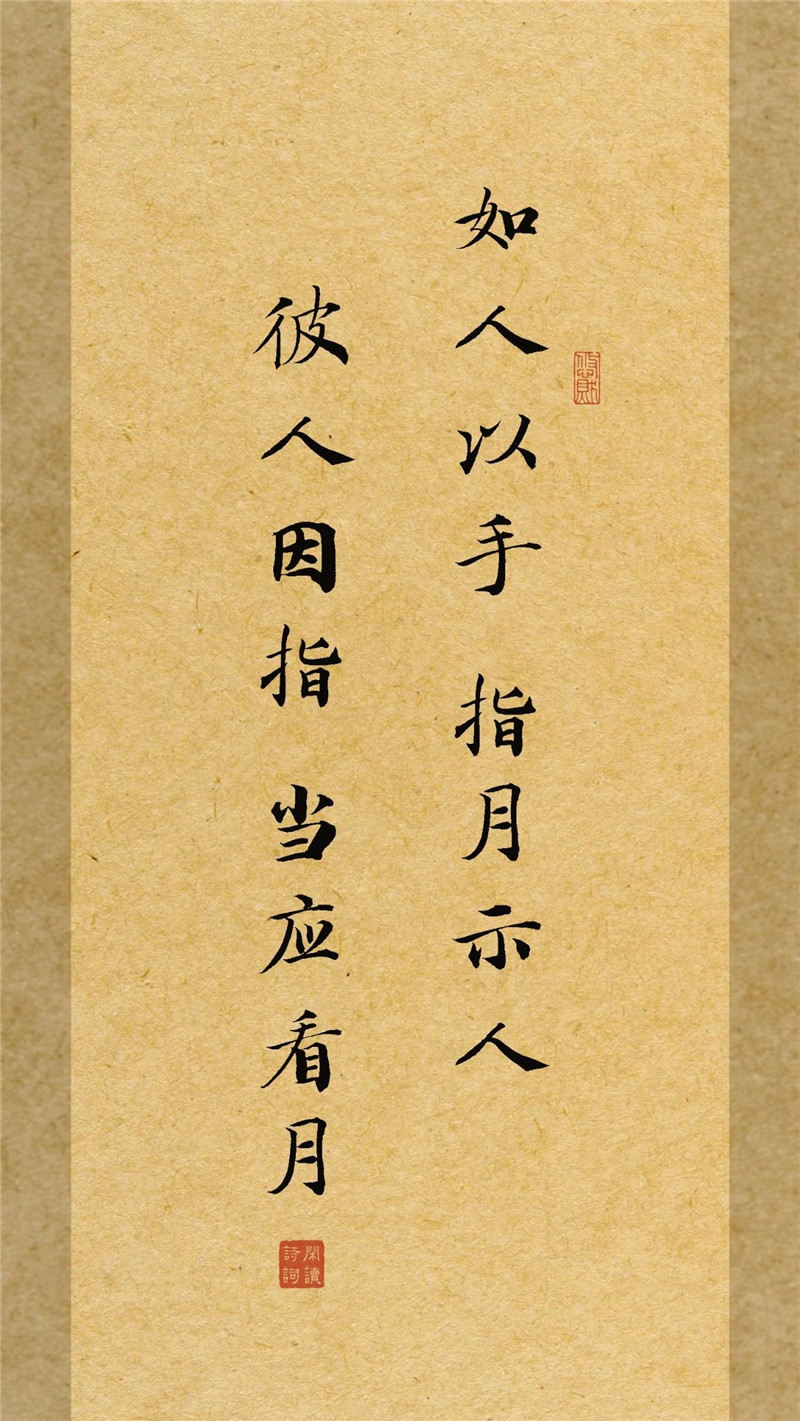 如人以手 指月示人
彼人因指 当应看月
閑讀
詩詞